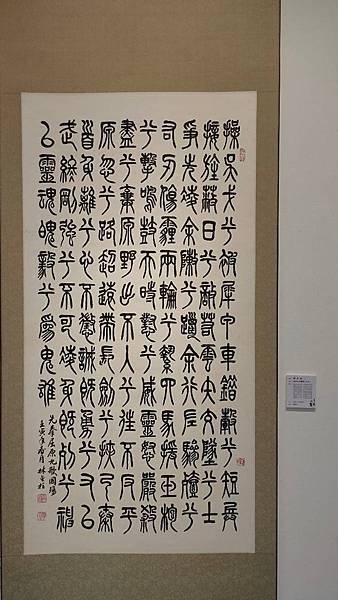 操吳戈兮被犀甲車錯轂兮短兵
接旌蔽日兮敵若雲矢交墜兮士
爭先凌余陣兮躐余行左驂殪兮
右刃傷霾兩輪兮縶四馬援玉枹
兮擊鳴鼓天時懟兮威靈怒嚴殺
盡兮棄原野出不入兮往不反平
原忽兮路超遠帶長劍兮挾秦弓
首身離兮心不懲誠既勇兮又以
武終剛強兮不可凌身既死兮神
以靈魂魄毅兮為鬼雄
先秦屈原九歌國殤
壬寅年月林